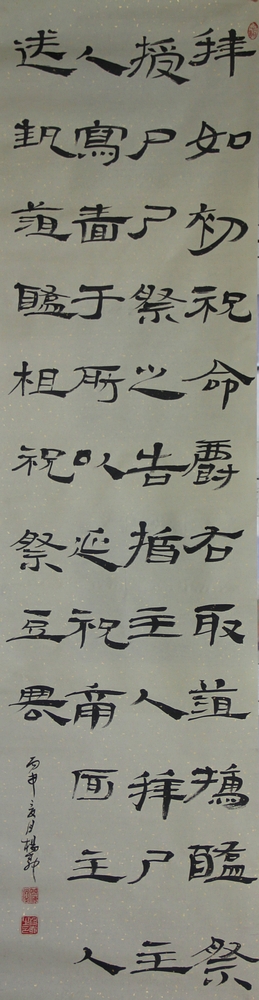 拜如初祝命爵右取菹擩醢祭
授尸尸祭之告指主人拜尸主
人寫嗇于所以延祝南面主人
送執菹醢柤祝祭豆
丙申夏月楊